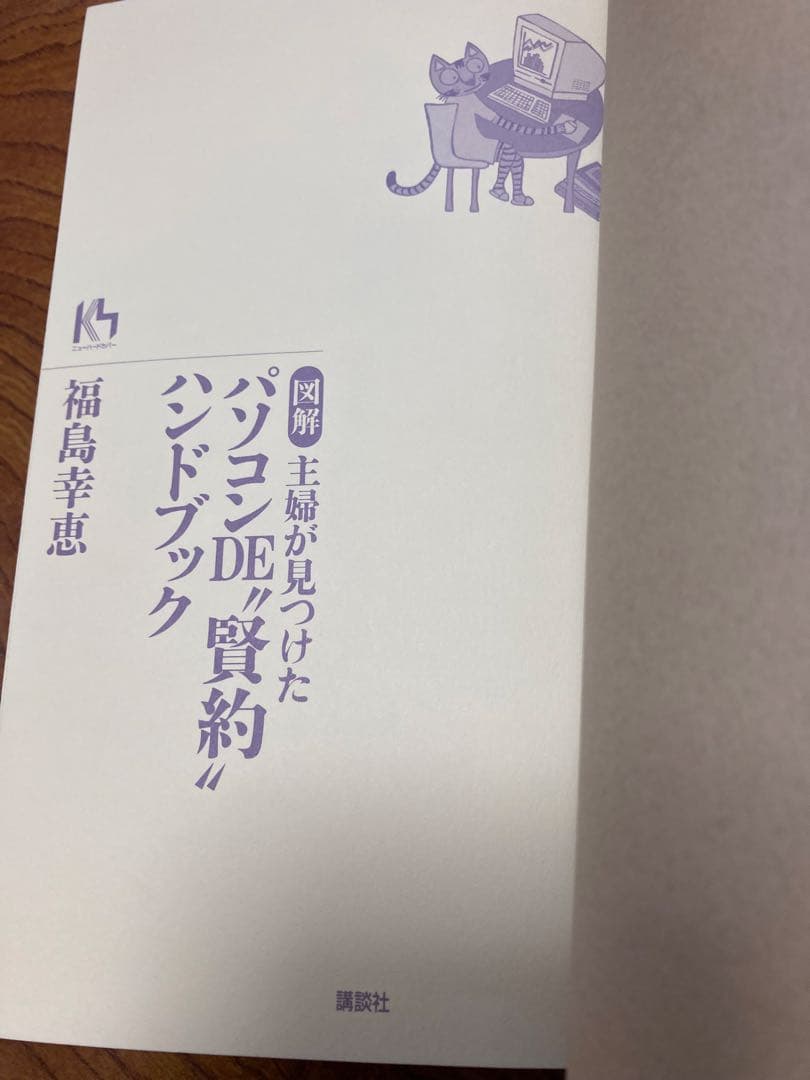 図解 主婦が見つけた
パソコンDE〝賢約〟
ハンドブック
福島幸恵
KS
ニューハードカバー
講談社